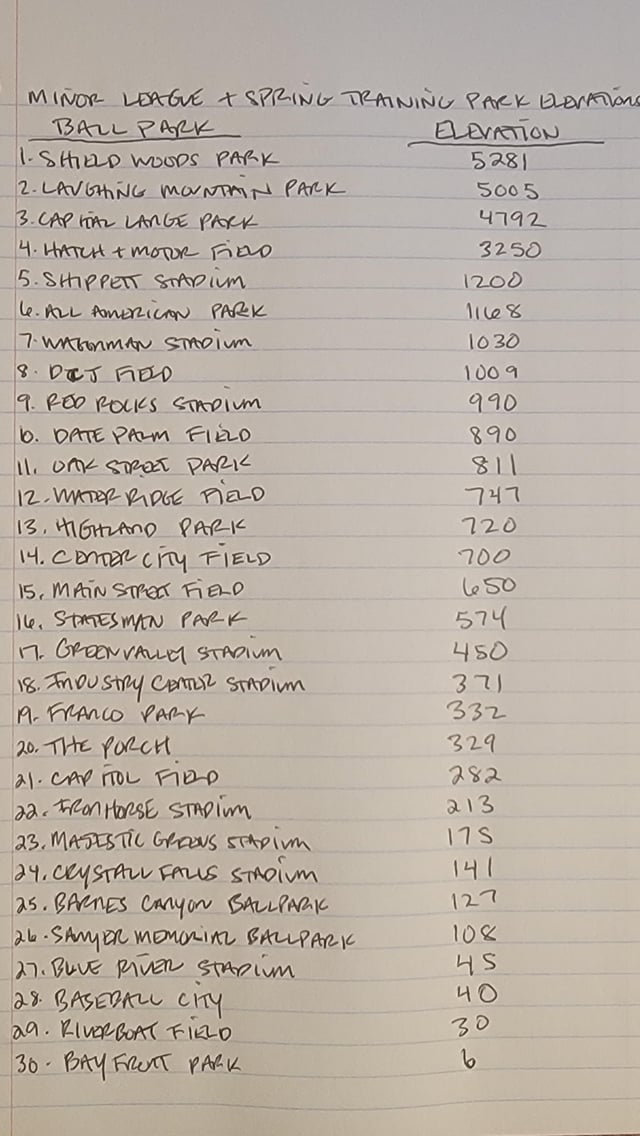 MINOR LEAGUE + SPRING TRAINING PARK ELEVATIONS
BALL PARK ELEVATION
1. SHIELD WOODS PARK 5281
2. LAUGHING MOUNTAIN PARK 5005
3. CAPITAL LARGE PARK 4792
4. HATCH + MOTOR FIELD 3250
5. SHIPPETT STADIUM 1200
6. ALL AMERICAN PARK 1168
7. WATERMAN STADIUM 1030
8. DCT FIELD 1009
9. RED ROCKS STADIUM 990
10. DATE PALM FIELD 890
11. OAK STREET PARK 811
12. WATER RIDGE FIELD 747
13. HIGHLAND PARK 720
14. CENTER CITY FIELD 700
15. MAIN STREET FIELD 650
16. STATESMAN PARK 574
17. GREEN VALLEY STADIUM 450
18. INDUSTRY CENTER STADIUM 371
19. FRANCO PARK 332
20. THE PORCH 329
21. CAPITOL FIELD 282
22. IRON HORSE STADIUM 213
23. MAJESTIC GREENS STADIUM 175
24. CRYSTALL FALLS STADIUM 141
25. BARNES CANYON BALLPARK 127
26. SAWYER MEMORIAL BALLPARK 108
27. BLUE RIVER STADIUM 45
28. BASEBALL CITY 40
29. RIVERBOAT FIELD 30
30. BAY FRONT PARK 6